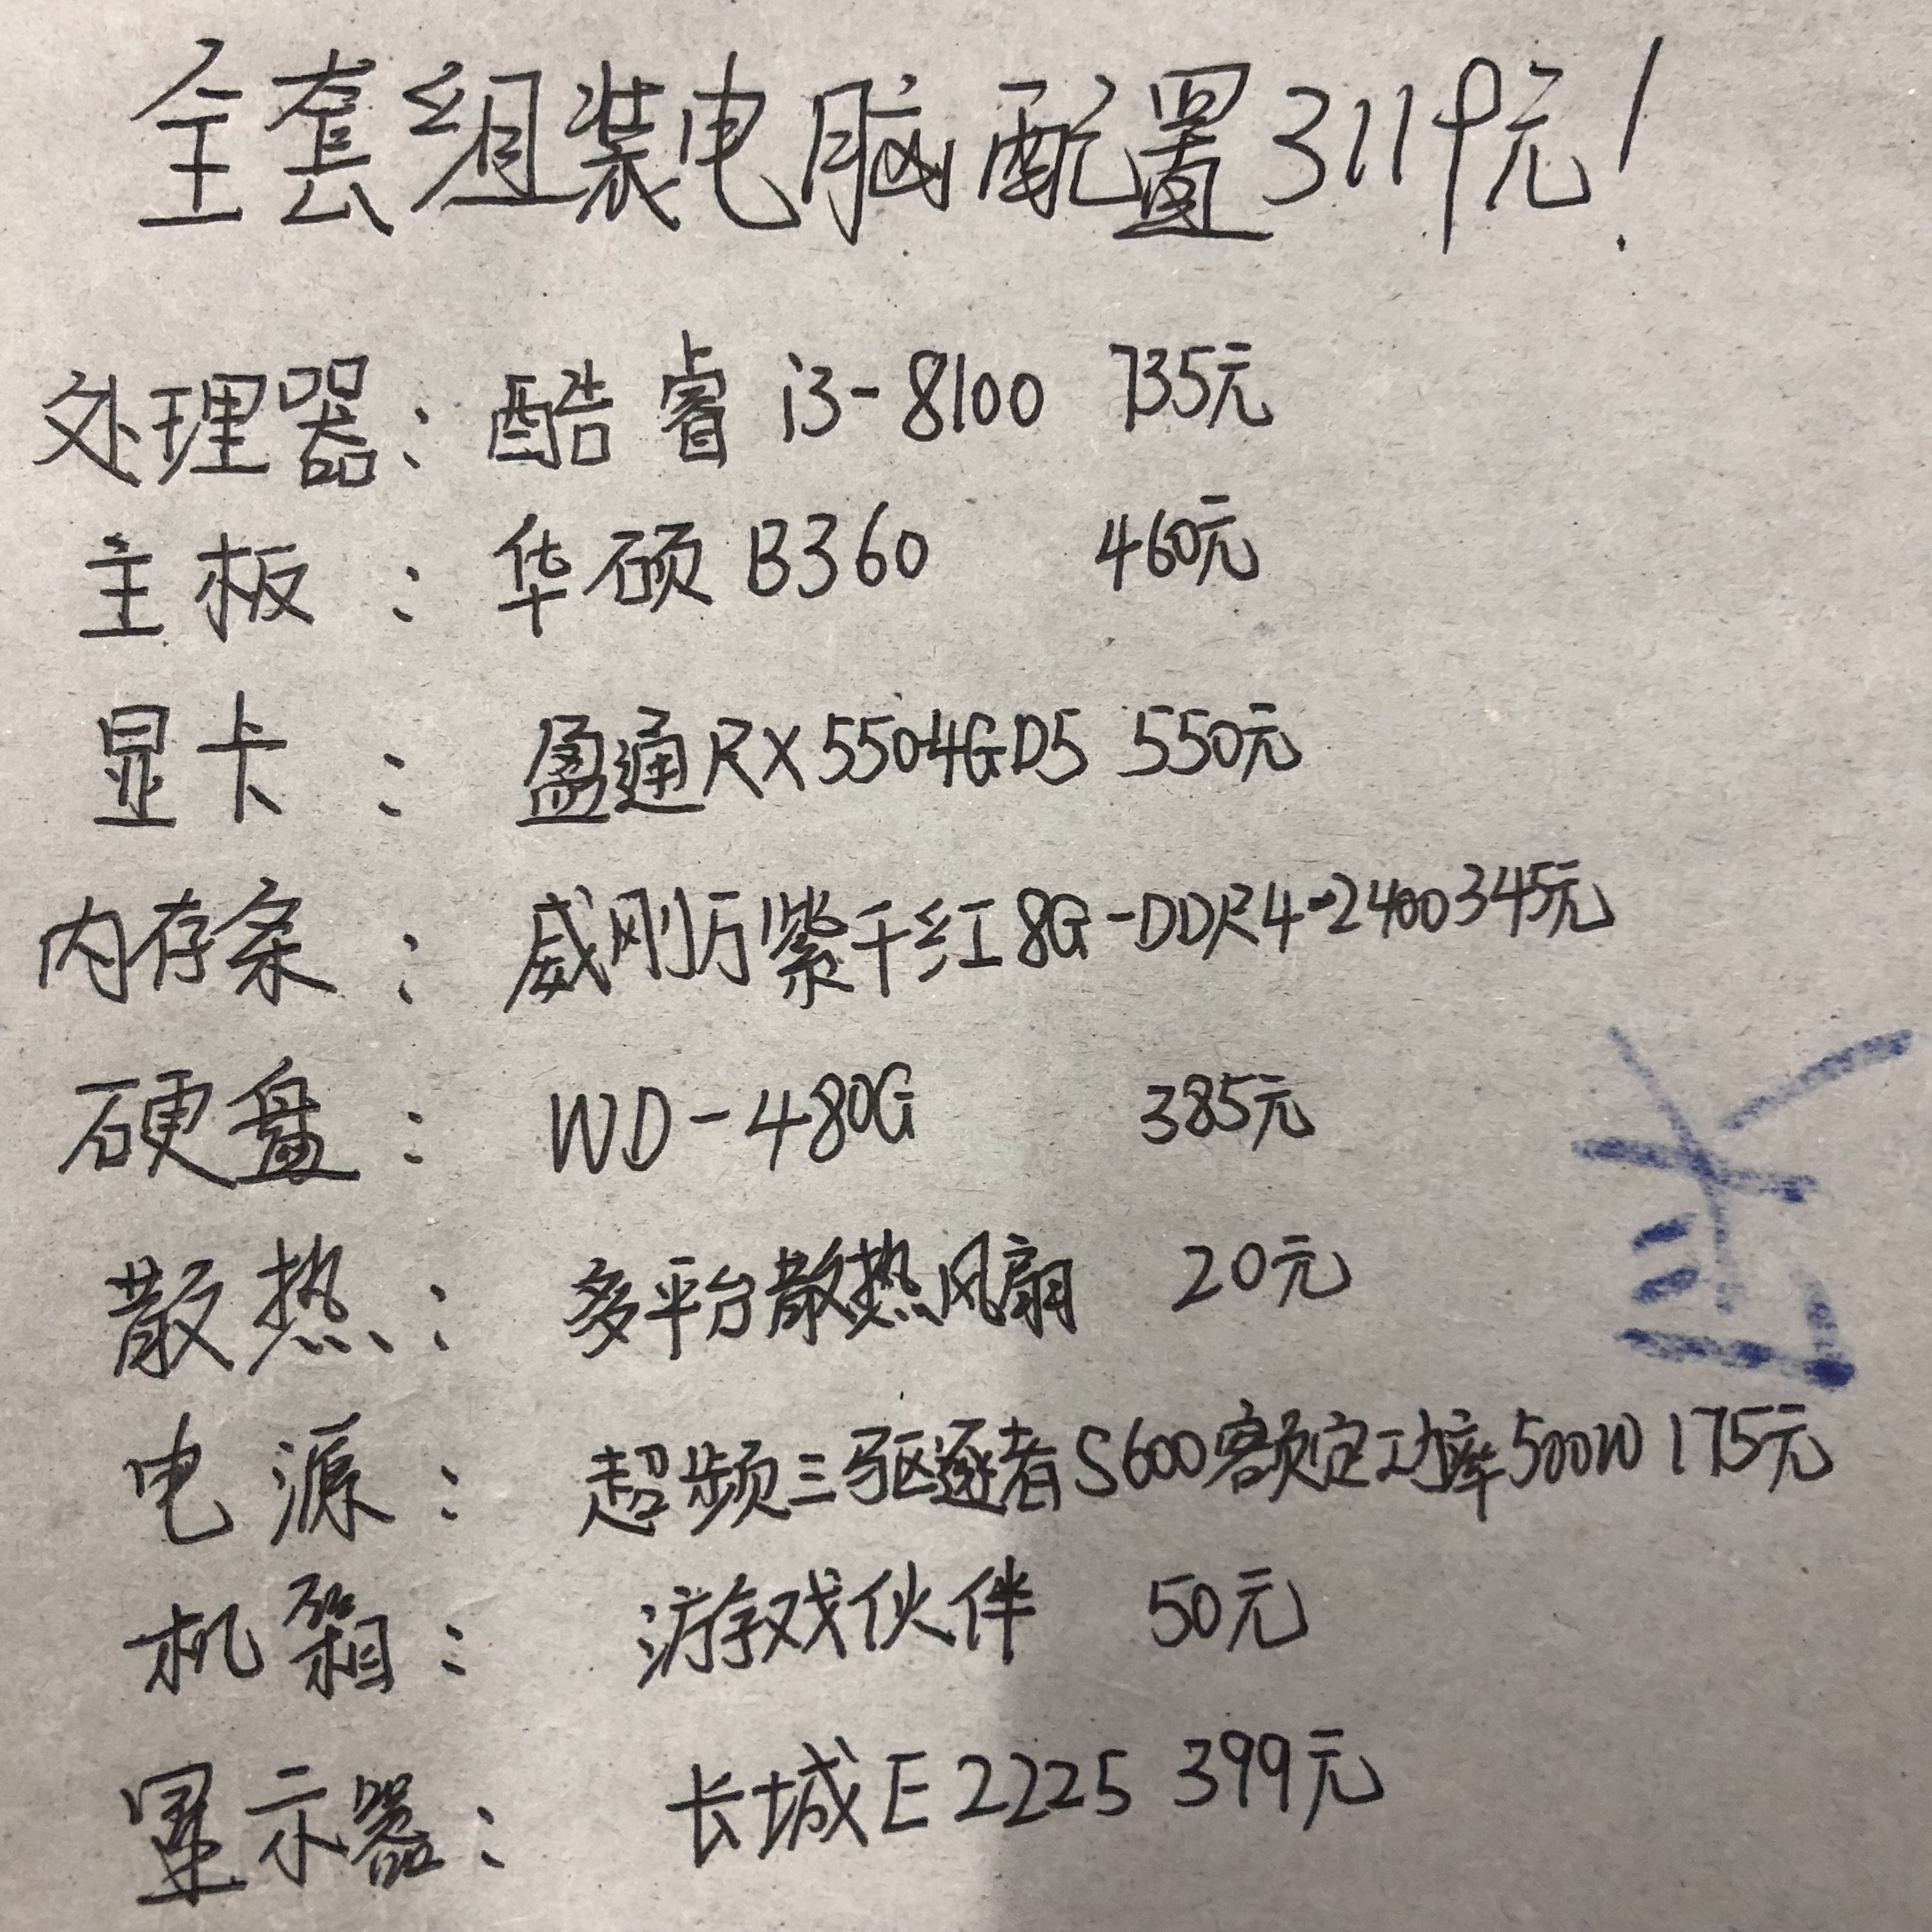 全套组装电脑配置3119元!
处理器:酷睿i3-8100 735元
主板:华硕B360 460元
显卡:盈通RX5504GD5 550元
内存条:威刚万紫千红8G-DDR4-2400 345元
硬盘:WD-480G 385元
散热:多平台散热风扇 20元
电源:超频三驱逐者S600额定功率500W 175元
机箱:游戏伙伴 50元
显示器:长城E2225 399元